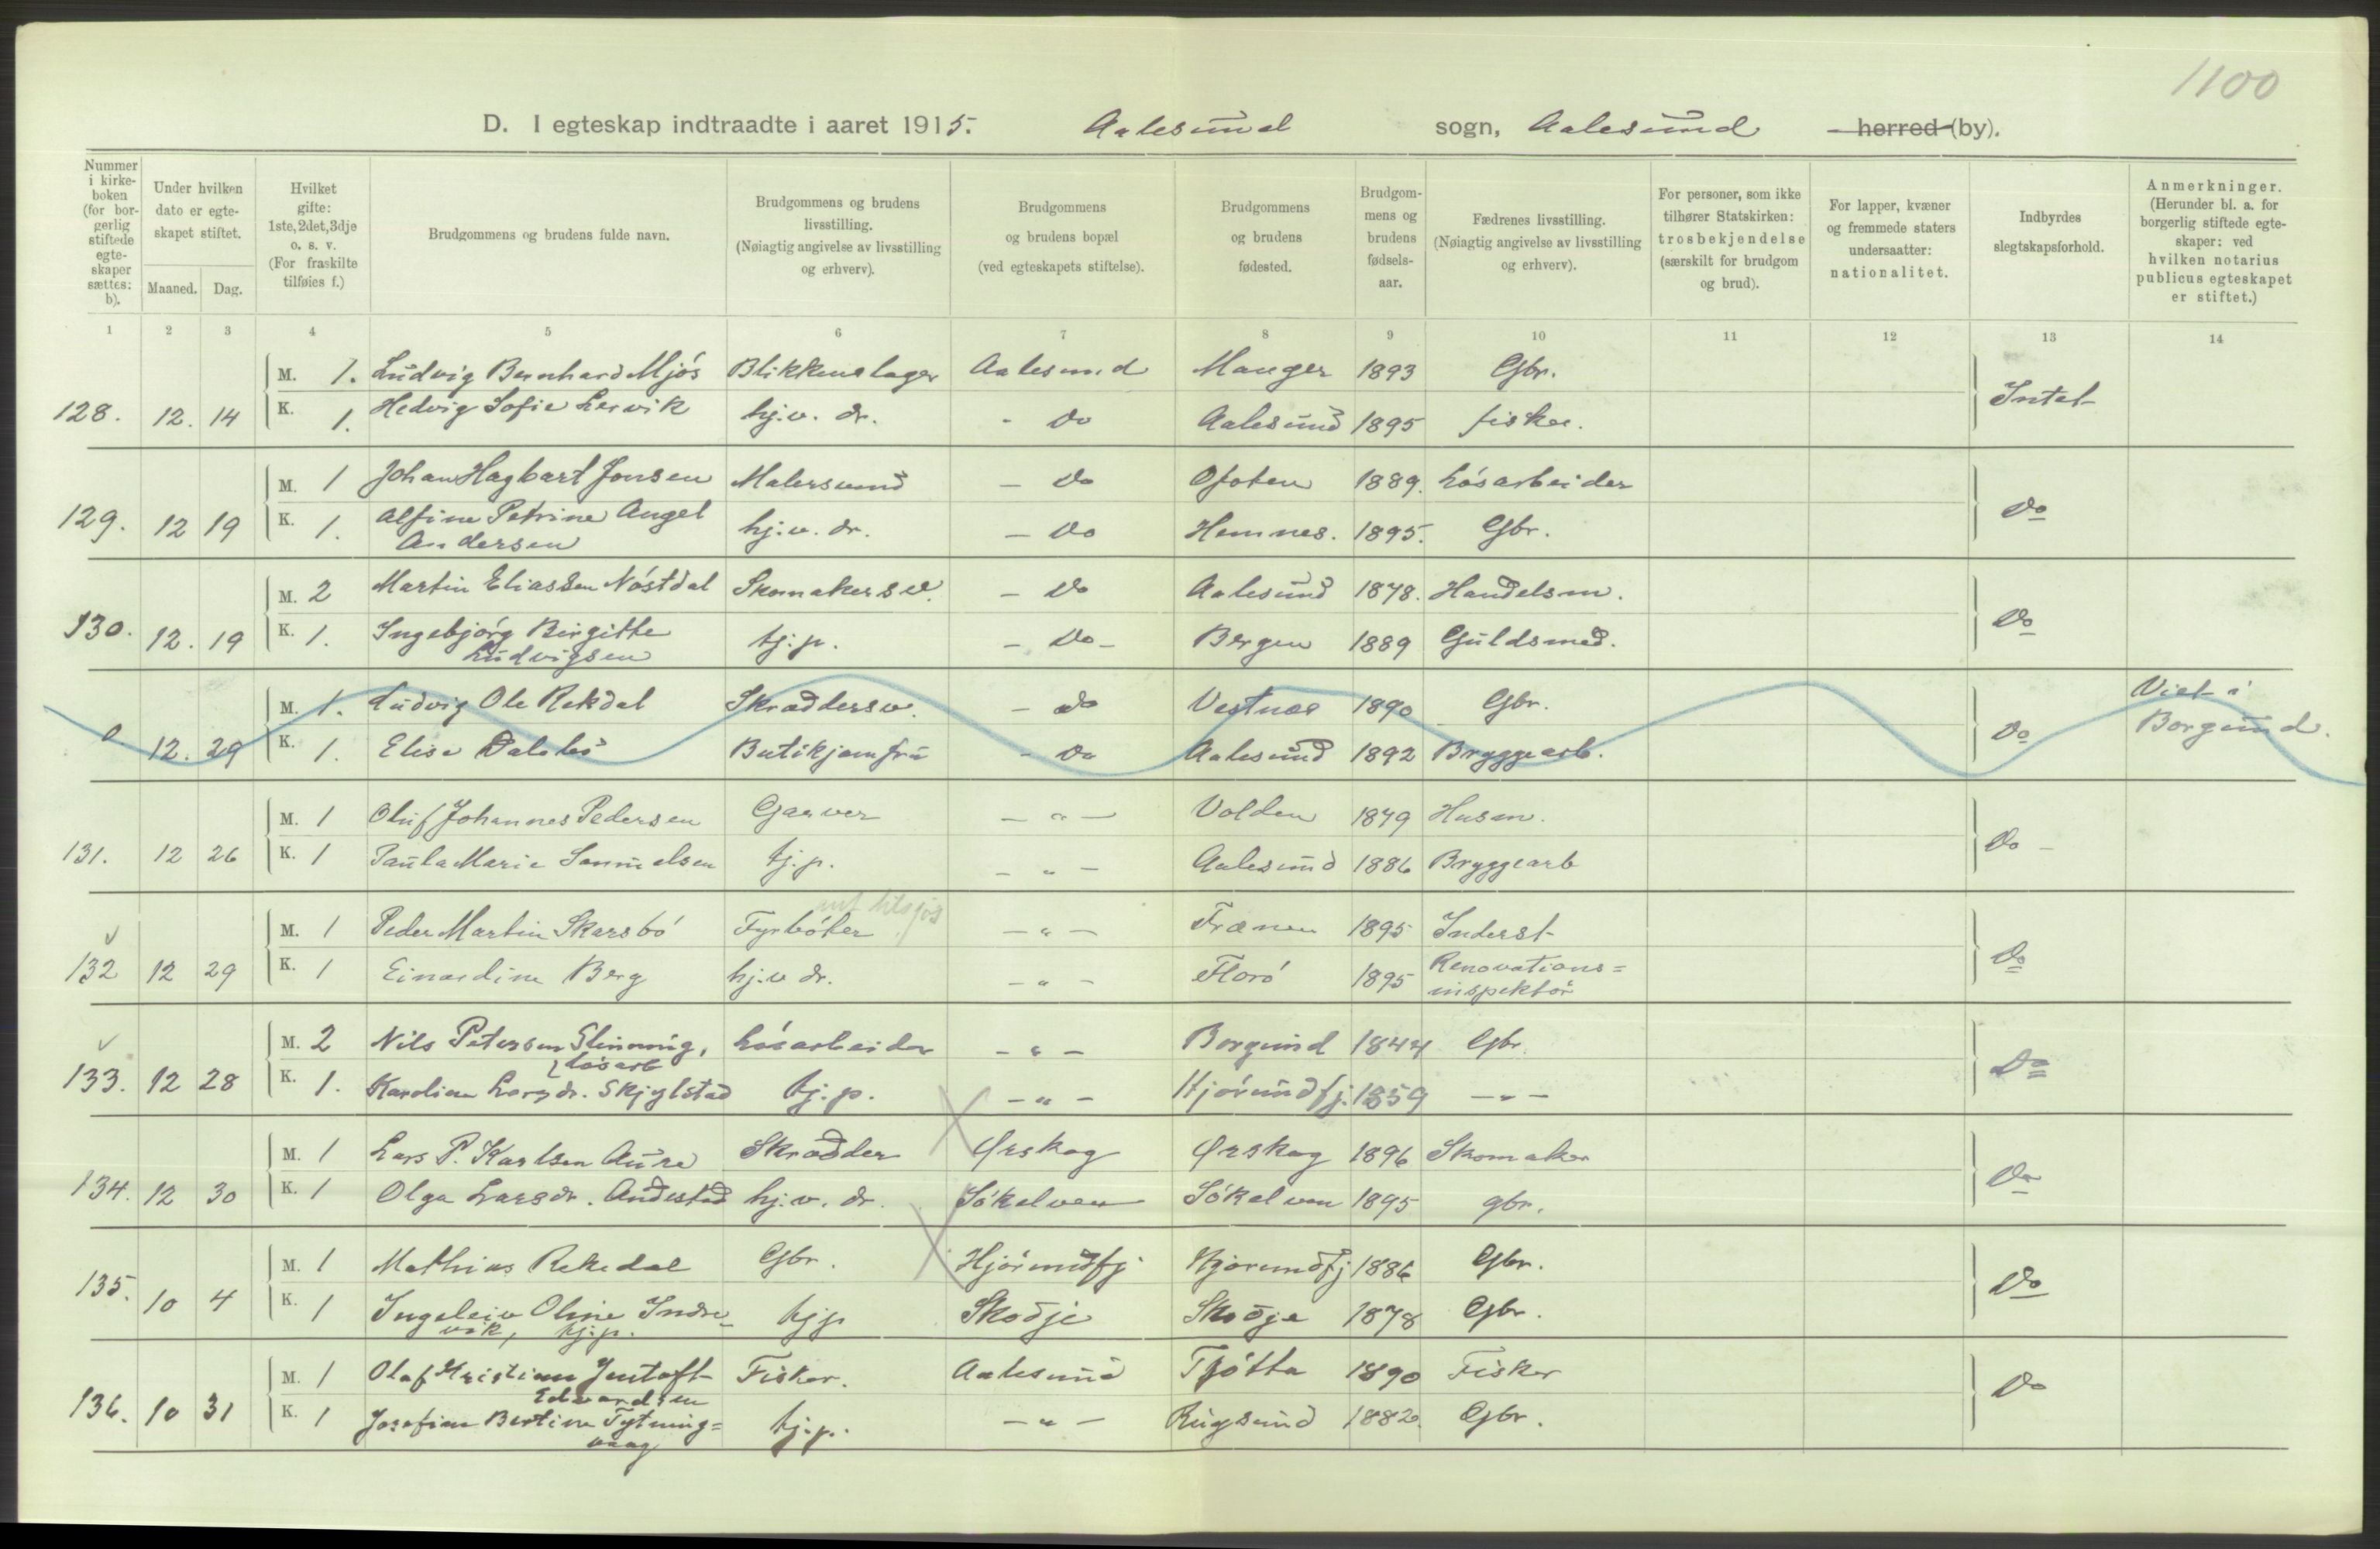 1100
D. I egteskap indtraadte i aaret 1915. Aalesund sogn, Aalesund herred (by).
Nummer i kirke-boken (for bor-gerlig stiftede egte-skaper sættes: b).
Under hvilken dato er egte-skapet stiftet.
Maaned. Dag.
Hvilket gifte: 1ste, 2det, 3dje o. s. v. (For fraskilte tilføies f.)
Brudgommens og brudens fulde navn.
Brudgommens og brudens livsstilling. (Nøiagtig angivelse av livsstilling og erhverv).
Brudgommens og brudens bopæl (ved egteskapets stiftelse).
Brudgommens og brudens fødested.
Brudgom-mens og brudens fødsels-aar.
Fædrenes livsstilling. (Nøiagtig angivelse av livsstilling og erhverv).
For personer, som ikke tilhører Statskirken: trosbekjendelse (særskilt for brudgom og brud).
For lapper, kvæner og fremmede staters undersaatter: nationalitet.
Indbyrdes slegtskapsforhold.
Anmerkninger. (Herunder bl. a. for borgerlig stiftede egte-skaper: ved hvilken notarius publicus egteskapet er stiftet.)
1 2 3 4 5 6 7 8 9 10 11 12 13 14
M. 1. Ludvig Bernhard Mjós Blikkenslager Aalesund Manger 1893 Gbr.
128. 12. 14 K. 1. Hedvig Sofie Lervik hj.v. dr. - do Aalesund 1895 fisker. Intet
M. 1 Johan Hagbart Jonsen Malersvend - do Ofoten 1889. Lósarbeider
129. 12 19 K. 1. Alfine Petrine Angel hj.v. dr. - do Hemnes. 1895. Gbr. do
Andersen
M. 2 Martin Eliassen Nóstdal Skomakersv. - do Aalesund 1878. Handelsm.
130. 12. 19 K. 1. Ingebjórg Birgitte tj.p. - do - Bergen 1889 Guldsmed. do
Ludvigsen
M. 1. Ludvig Ole Rekdal Skræddersv. - do Vestnes 1890 Gbr. Viet i
0 12. 29 K. 1. Elise Dalsbó Butikjomfru - do Aalesund 1892 Bryggearb. do Borgund.
M. 1 Oluf Johannes Pedersen Garver - " - Volden 1879 Husm.
131. 12 26 K. 1 Paula Marie Samuelsen tj.p. - " - Aalesund 1886 Bryggearb do -
tilsjøs
M. 1 Peder Martin Skarsbó Fyrbóter - " - Frænen 1895 Inderst
132 12 29 K. 1 Einardine Berg hj.v dr. - " - Floró 1895 Renovations= do
inspektór
M. 2 Nils Petersen Slinning, Lósarbeider - " - Borgund 1844 Gbr.
lósarb
133. 12 28 K. 1. Karoline Larsdr. Skjylstad tj.p. - " - Hjórundfj. 1859 - " - do
M. 1 Lars P. Karlsen Aure Skrædder Ørskog Ørskog 1896 Skomaker
134. 12 30 K. 1 Olga Larsdr. Andestad hj.v. dr. Sókelven Sókelven 1895 gbr. do
M. 1 Mathias Rekedal Gbr. Hjórundfj Hjorundfj 1886 Gbr.
135. 10 4 K. 1 Ingeleiv Oline Indre- tjp Skodje Skodje 1878 Gbr. do
vik, tj.p.
M. 1 Olaf Kristian Jentoft Fisker. Aalesund Tjótta 1890 Fisker
Edvardsen
136. 10 31 K. 1 Josefine Bertine Tytning= tj.p. - " - Rugsund 1882. Gbr. do
vaag